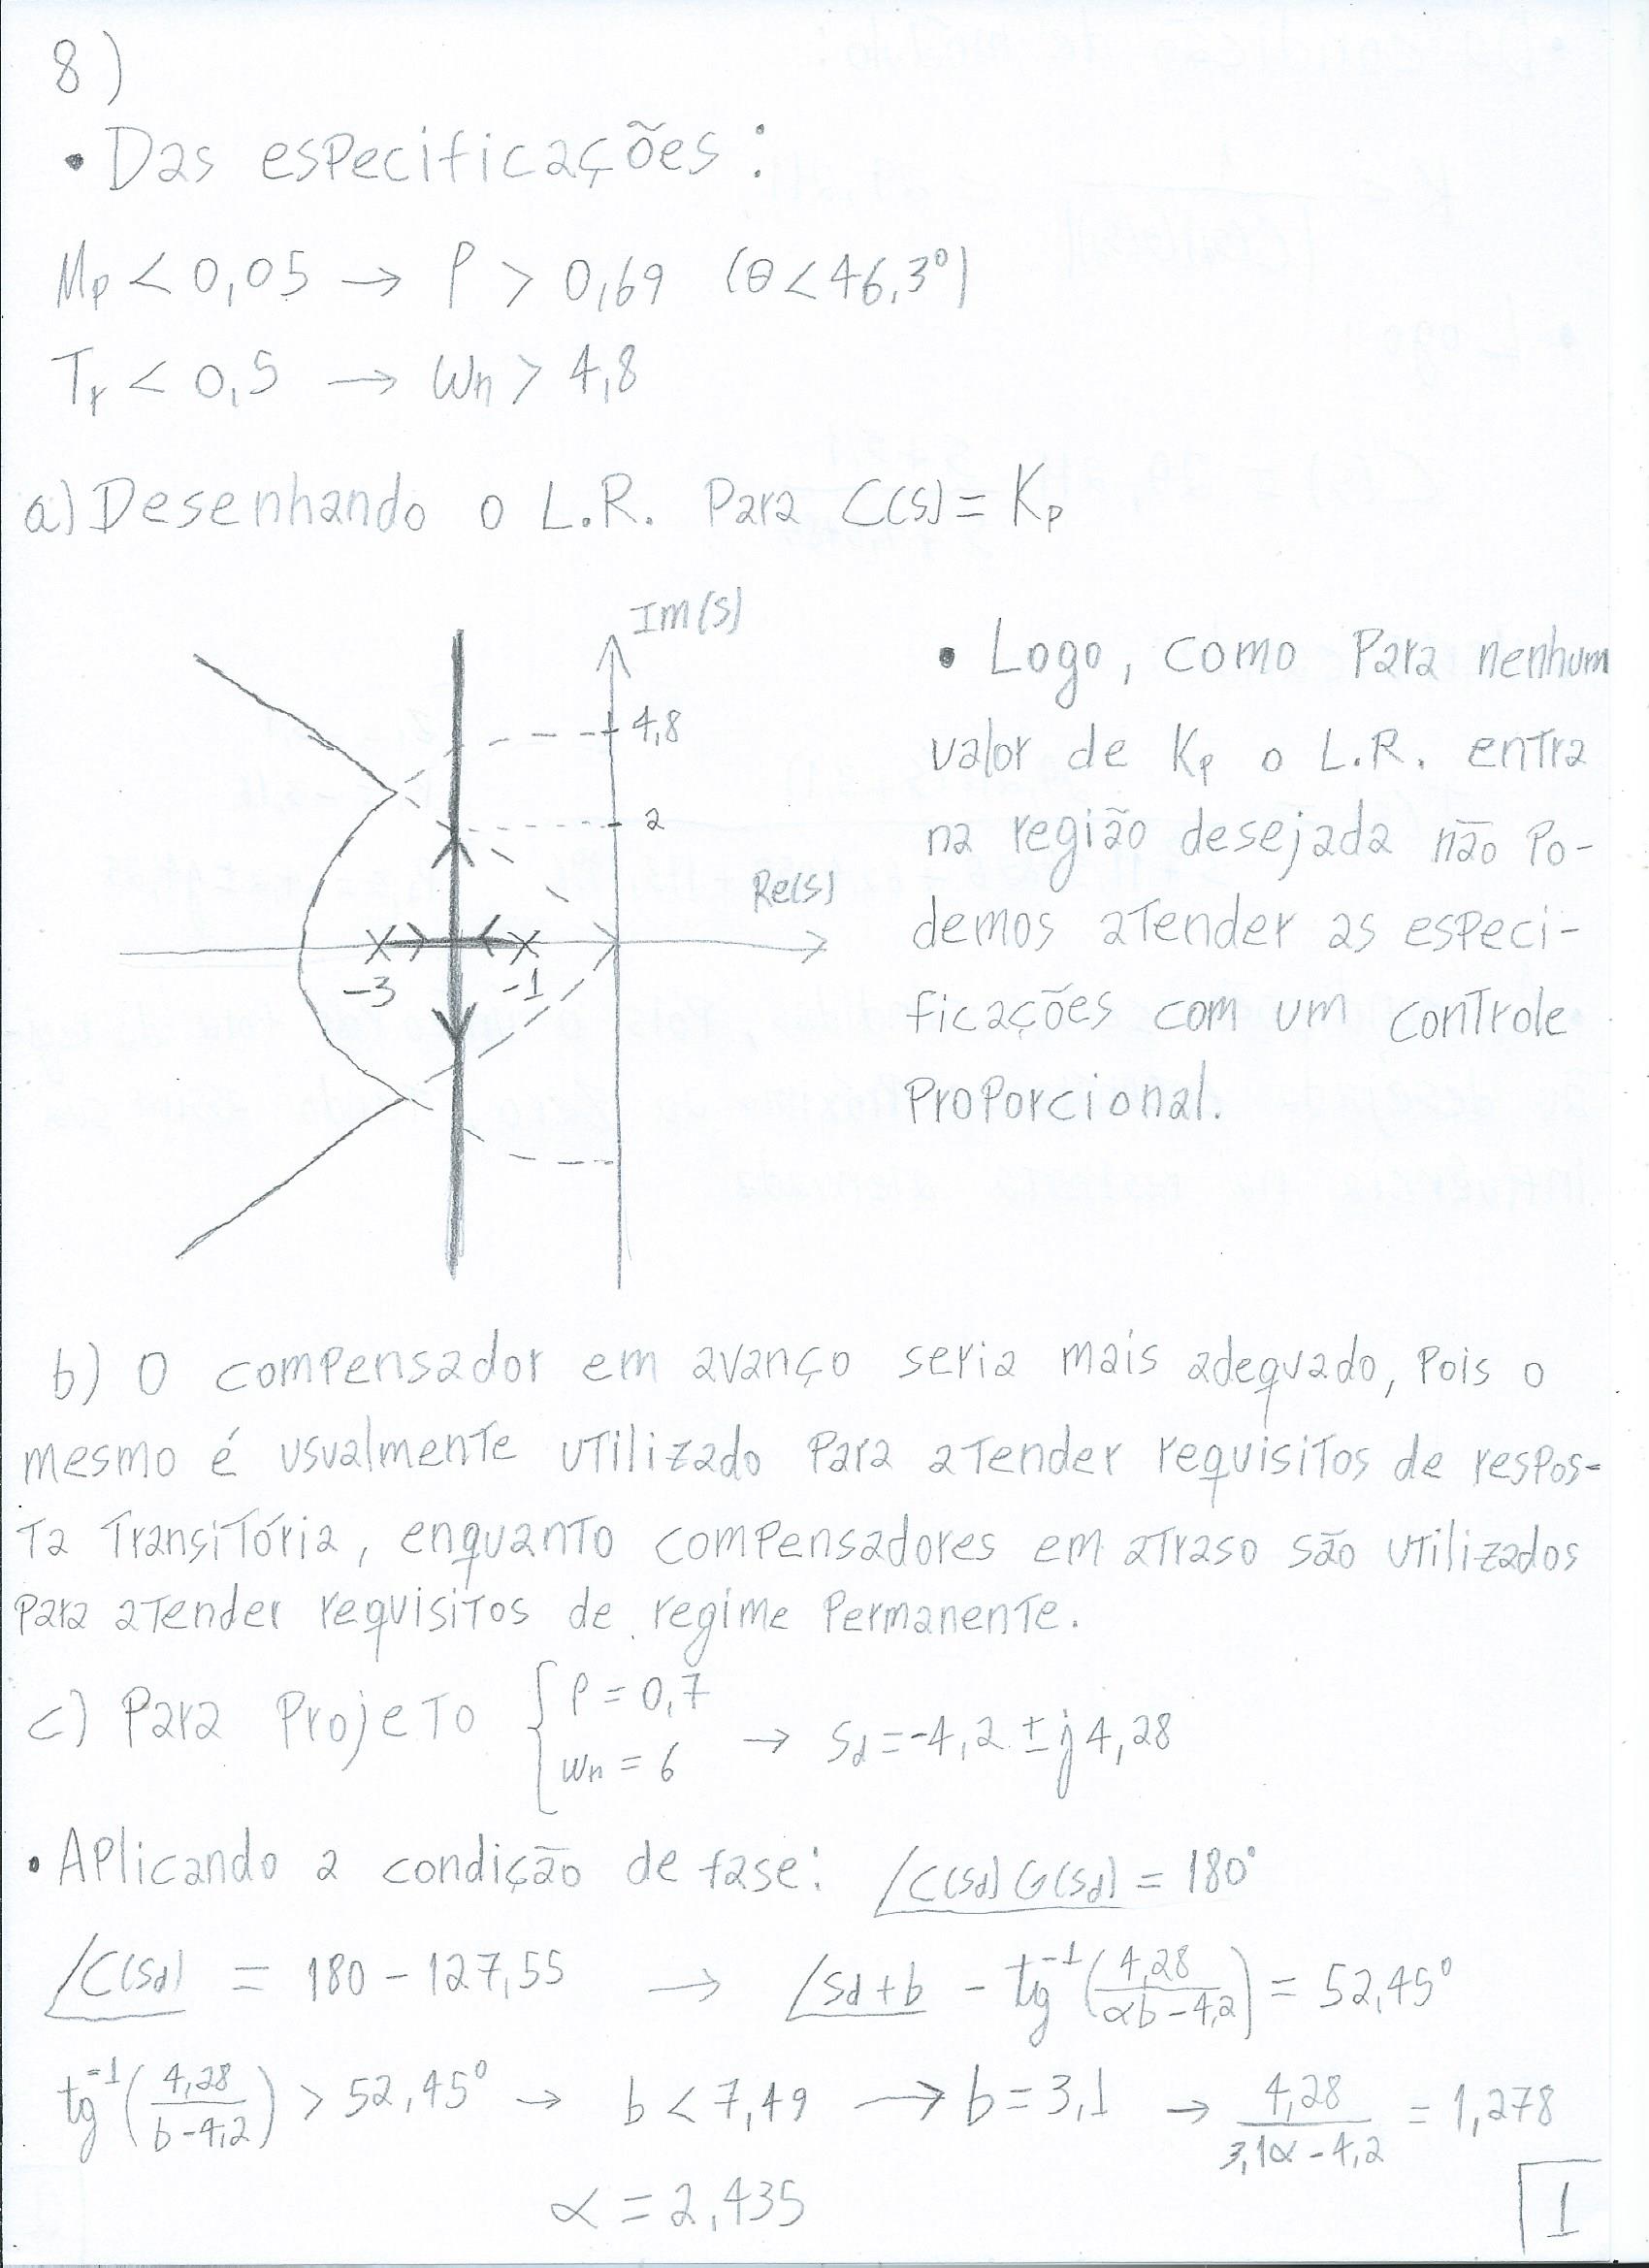 8)
• Das especificações:
Mp < 0,05 → ρ > 0,69 (θ < 46,3°)
Tr < 0,5 → Wn > 4,8
a) Desenhando o L.R. Para C(s) = Kp
Im(s)
4,8
2
Re(s)
-3 -1
• Logo, como Para nenhum
valor de Kp o L.R. entra
na região desejada não Po-
demos atender as especi-
ficações com um controle
Proporcional.
b) O compensador em avanço seria mais adequado, Pois o
mesmo é usualmente utilizado Para atender requisitos de respos-
ta Transitória, enquanto compensadores em atraso são utilizados
Para atender requisitos de regime Permanente.
c) Para Projeto { ρ = 0,7 Wn = 6 → Sd = -4,2 ± j4,28
• Aplicando a condição de fase: ∠C(Sd)G(Sd) = 180°
∠C(Sd) = 180 - 127,55 → ∠Sd + b - tg⁻¹(4,28/(αb - 4,2)) = 52,45°
tg⁻¹(4,28/(b - 4,2)) > 52,45° → b < 7,49 → b = 3,1 → 4,28/(3,1α - 4,2) = 1,278
α = 2,435
1